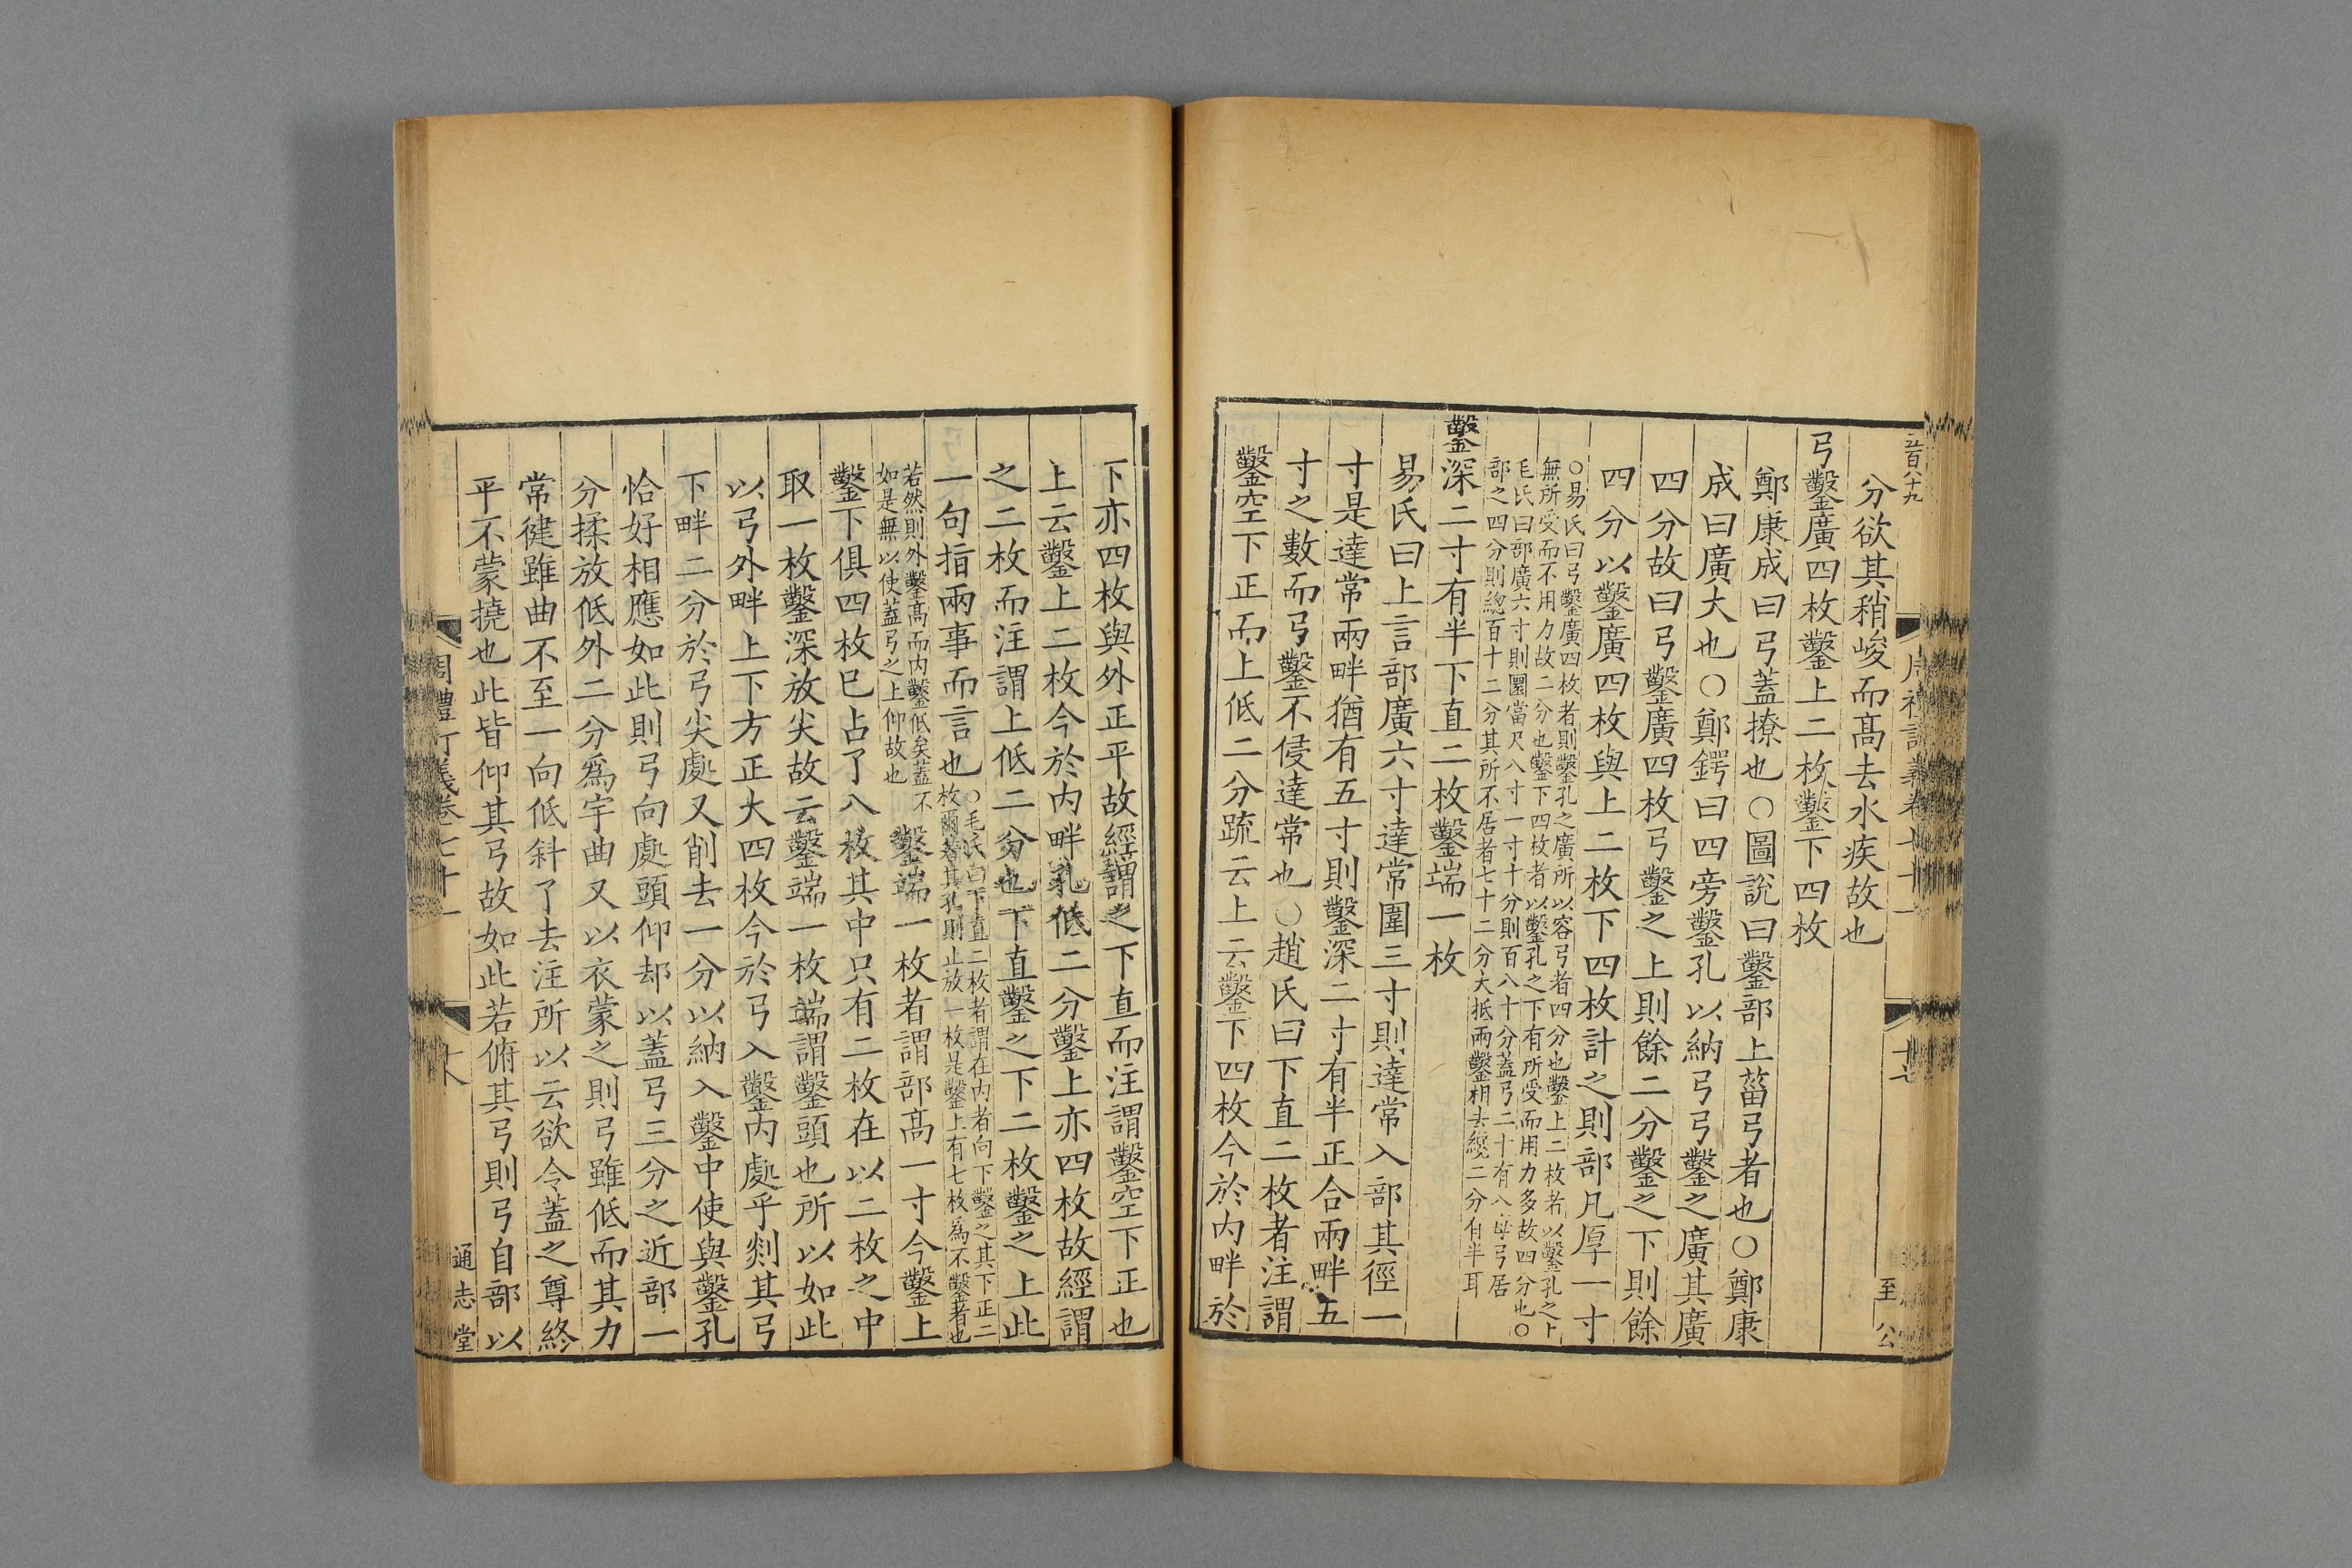 分欲其稍峻而髙去水疾故也
弓鑿廣四枚鑿上二枚鑿下四枚
鄭康成曰弓蓋橑也○圖說曰鑿部上菑弓者也○鄭康
成曰廣大也○鄭鍔曰四旁鑿孔以納弓弓鑿之廣其廣
四分故曰弓鑿廣四枚弓鑿之上則餘二分鑿之下則餘
四分以鑿廣四枚與上二枚下四枚計之則部凡厚一寸
○易氏曰弓鑿廣四枚者則鑿孔之廣所以容弓者四分也鑿上二枚者以鑿孔之上
無所受而不用力故二分也鑿下四枚者以鑿孔之下有所受而用力多故四分也○
毛氏曰部廣六寸則圍當尺八寸一寸十分則百八十分蓋弓二十有八每弓居
部之四分則緫百十二分其所不居者七十二分大抵兩鑿相去纔二分有半耳
鑿深二寸有半下直二枚鑿端一枚
易氏曰上言部廣六寸達常圍三寸則達常入部其徑一
寸是達常兩畔猶有五寸則鑿深二寸有半正合兩畔五
寸之數而弓鑿不侵達常也○趙氏曰下直二枚者注謂
鑿空下正而上低二分疏云上云鑿下四枚今於内畔於
下亦四枚與外正平故經謂之下直而注謂鑿空下正也
上云鑿上二枚今於内畔孔低二分鑿上亦四枚故經謂
之二枚而注謂上低二分也下直鑿之下二枚鑿之上此
一句指兩事而言也
○毛氏曰下直二枚者謂在内者向下鑿之其下正二
枚爾若其孔則止放一枚是鑿上有七枚為不鑿者也
若然則外鑿髙而内鑿低矣蓋不
如是無以使蓋弓之上仰故也
鑿端一枚者謂部髙一寸今鑿上
鑿下俱四枚已占了八枚其中只有二枚在以二枚之中
取一枚鑿深放尖故云鑿端一枚端謂鑿頭也所以如此
以弓外畔上下方正大四枚今於弓入鑿内處乎剡其弓
下畔二分於弓尖處又削去一分以納入鑿中使與鑿孔
恰好相應如此則弓向處頭仰却以蓋弓三分之近部一
分揉放低外二分爲宇曲又以衣蒙之則弓雖低而其力
常健雖曲不至一向低斜了去注所以云欲令蓋之尊終
平不蒙撓也此皆仰其弓故如此若俯其弓則弓自部以
通志堂